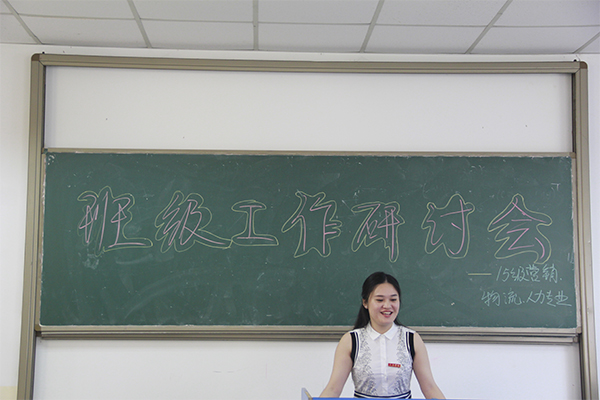 班级工作研讨会
——15级营销、
物流、人力专业